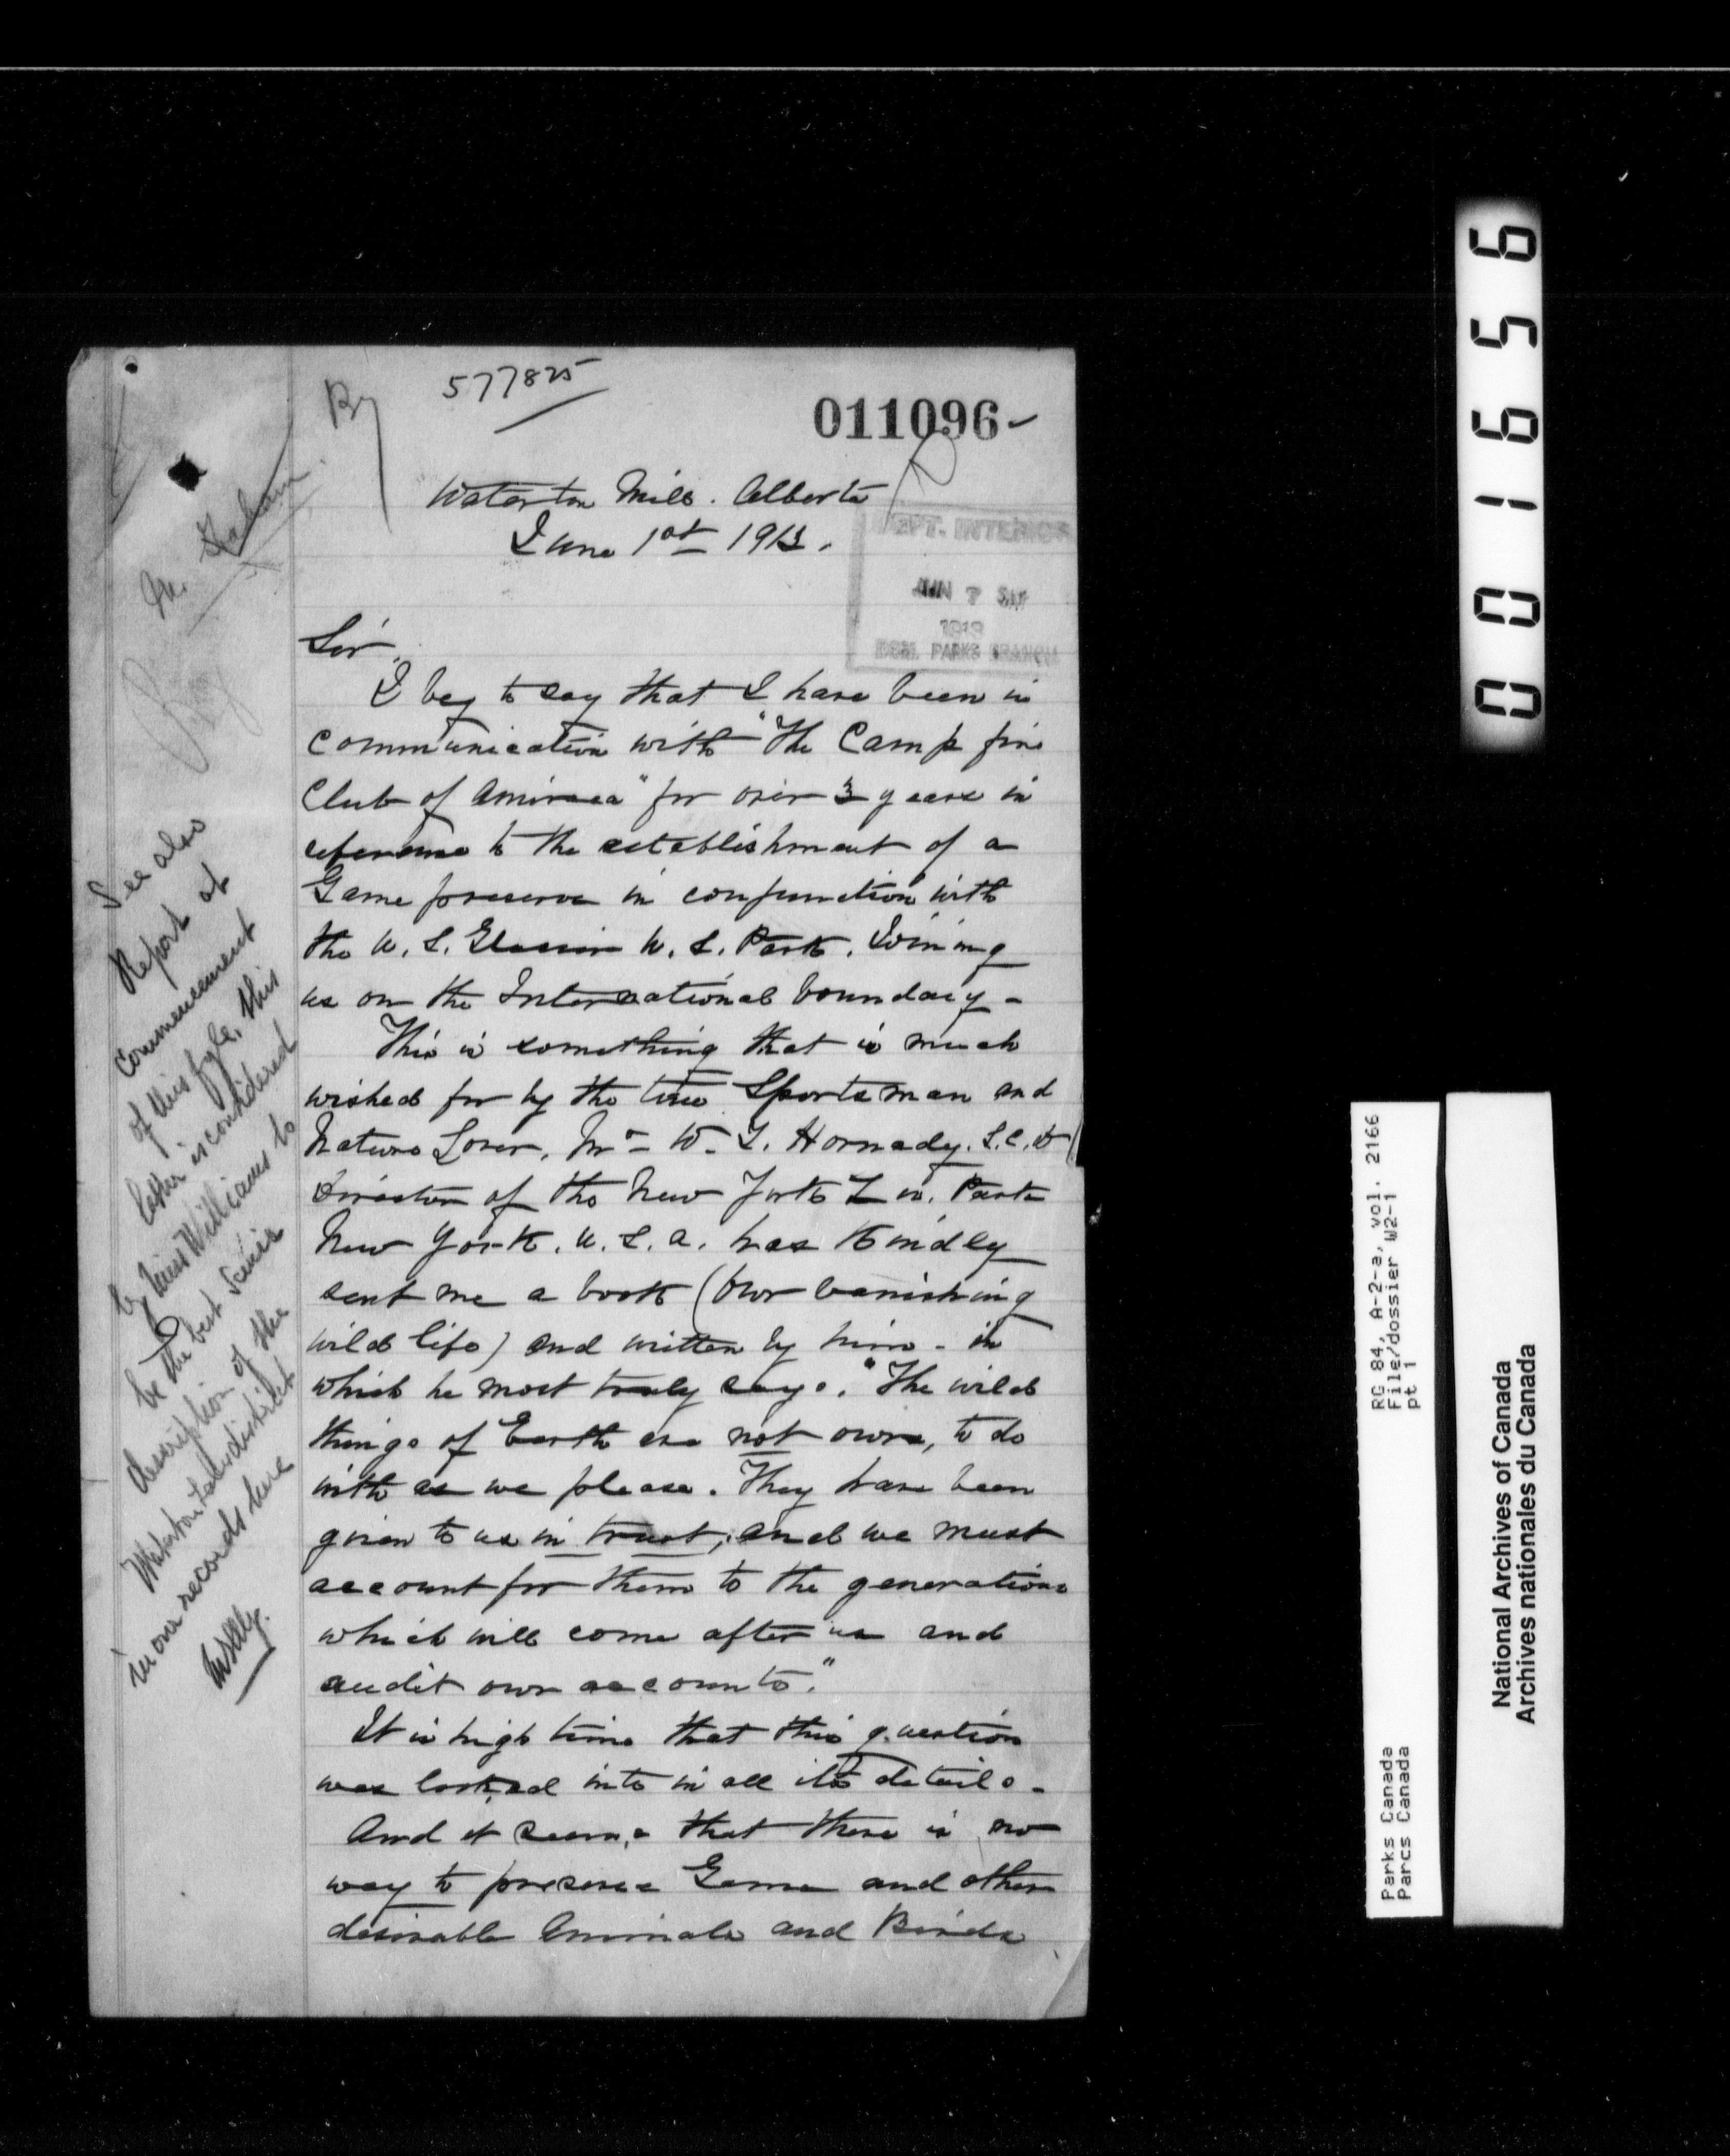 By
577825
011096
Waterton Mills. Alberta
June 1st 1913.
DEPT. INTERIOR
JUN 7
1913
DOM. PARKS BRANCH
Sir,
I beg to say that I have been in
communication with "The Camp fire
Club of America" for over 3 years in
reference to the establishment of a
Game preserve in conjunction with
the U. S. Glacier U. S. Park. Joining
us on the International boundary -
This is something that is much
wished for by the true Sportsman and
Nature Lover. Mr - W. T. Hornady. S.C.D
Director of the New York Zoo. Park
New York. U. S. A. has kindly
sent me a book (Our Vanishing
wild life) and written by him - in
which he most truly says. "The wild
things of Earth are not ours, to do
with as we please. They have been
given to us in trust, and we must
account for them to the generations
which will come after us and
audit our accounts."
It is high time that this question
was looked into in all its details -
And it seems that there is no
way to preserve Game and other
desirable Animals and Birds
See also
Report at
Commencement
of this fyle, this
latter is considered
by Miss Williams to
be the best
description of the
Waterton Lakes district
in our records here
001656
RG 84, A-2-a, vol. 2166
File/dossier W2-1
pt 1
Parks Canada
Parcs Canada
National Archives of Canada
Archives nationales du Canada